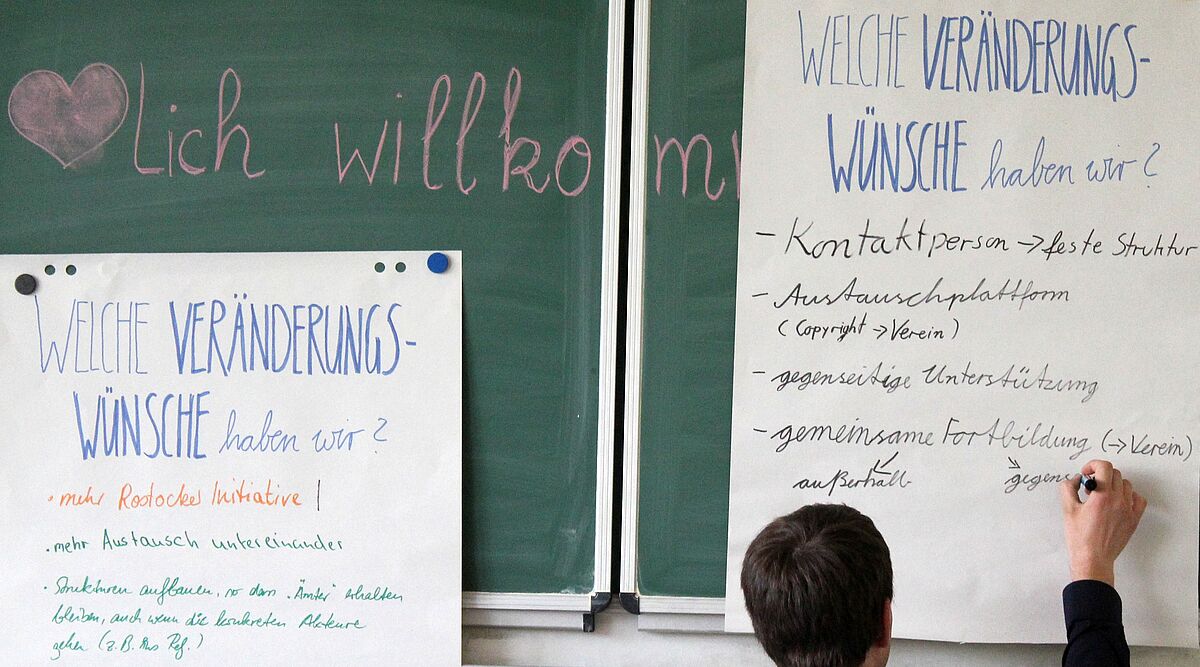 Lich willkomm
WELCHE VERÄNDERUNGS-
WÜNSCHE haben wir?
• mehr Rostocker Initiative
• mehr Austausch untereinander
• Strukturen aufbauen, so dass Ämter erhalten
bleiben, auch wenn die konkreten Akteure
gehen (z.B. Ref.)
WELCHE VERÄNDERUNGS-
WÜNSCHE haben wir?
- Kontaktperson → feste Struktur
- Austauschplattform
(Copyright → Verein)
- gegenseitige Unterstützung
- gemeinsame Fortbildung (→ Verein)
außerhalb gegens